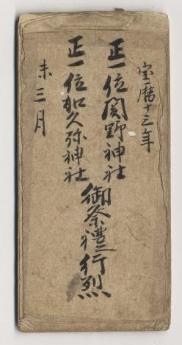 宝暦十三年
正一位関野神社
正一位加久弥神社
御祭禮行烈
未三月